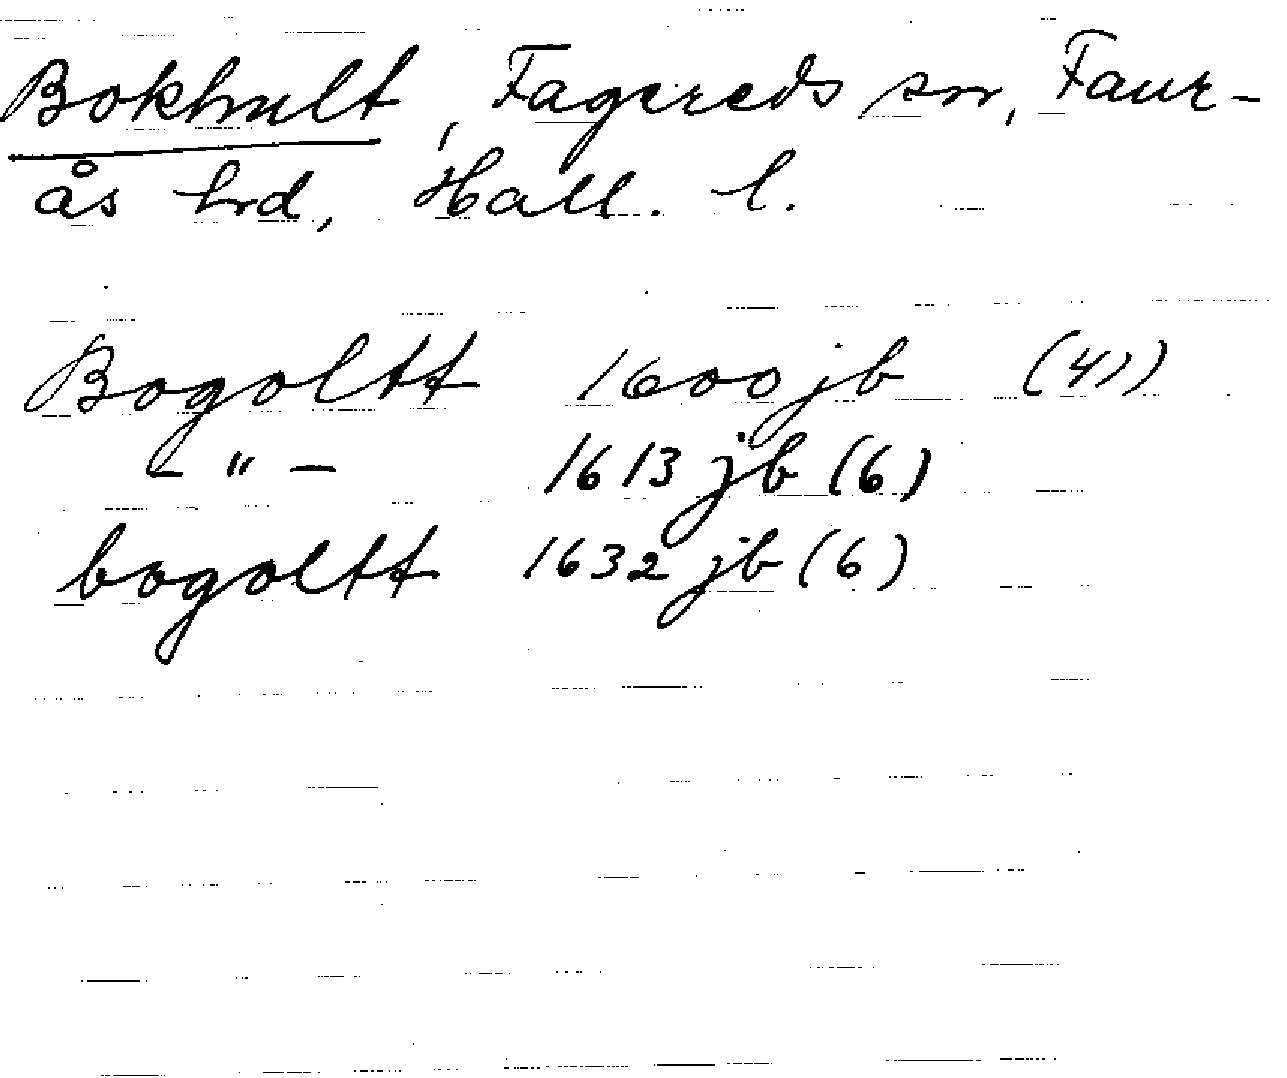 Bokhult, Fagereds sn, Faur-
ås hrd, Hall. l.
Bogoltt 1600 jb (4))
- " - 1613 jb (6)
bogoltt 1632 jb (6)